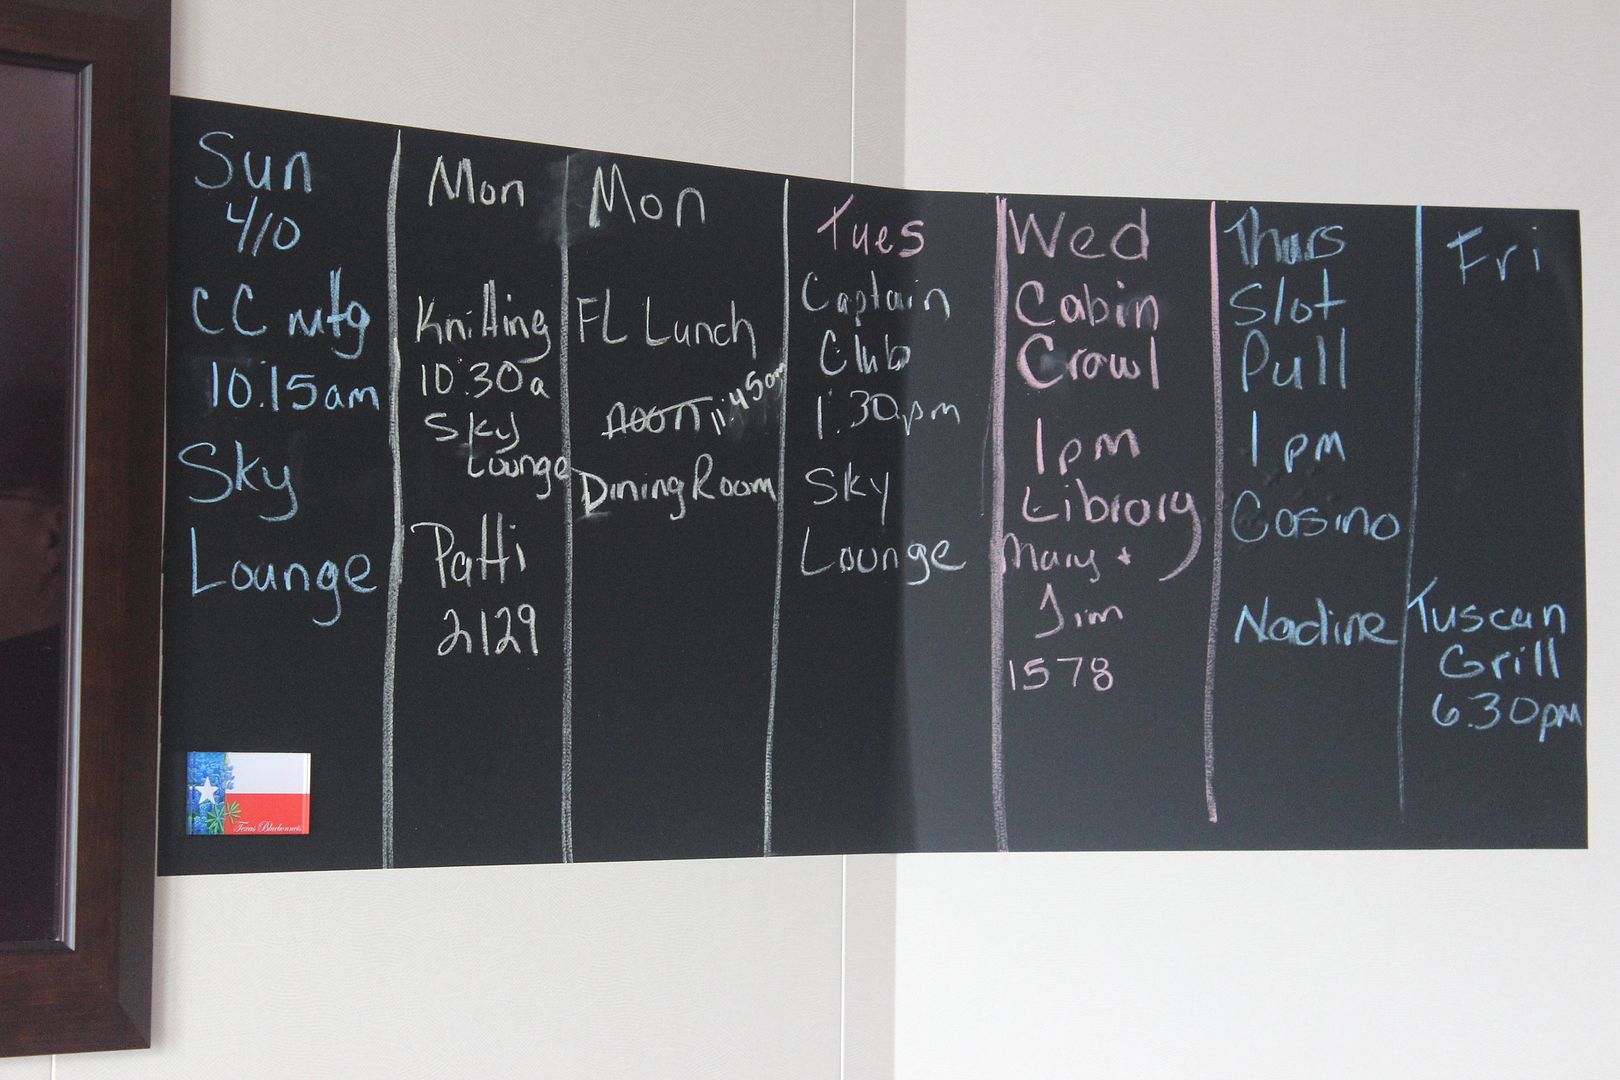 Sun
4/10
CC mtg
10:15am
Sky
Lounge
Texas Bluebonnets
Mon
Knitting
10:30a
Sky
Lounge
Patti
2129
Mon
FL Lunch
noon 11:45am
Dining Room
Tues
Captain
Club
1:30pm
Sky
Lounge
Wed
Cabin
Crawl
1pm
Library
Mary +
Jim
1578
Thurs
Slot
Pull
1pm
Casino
Nadine
Fri
Tuscan
Grill
6:30pm